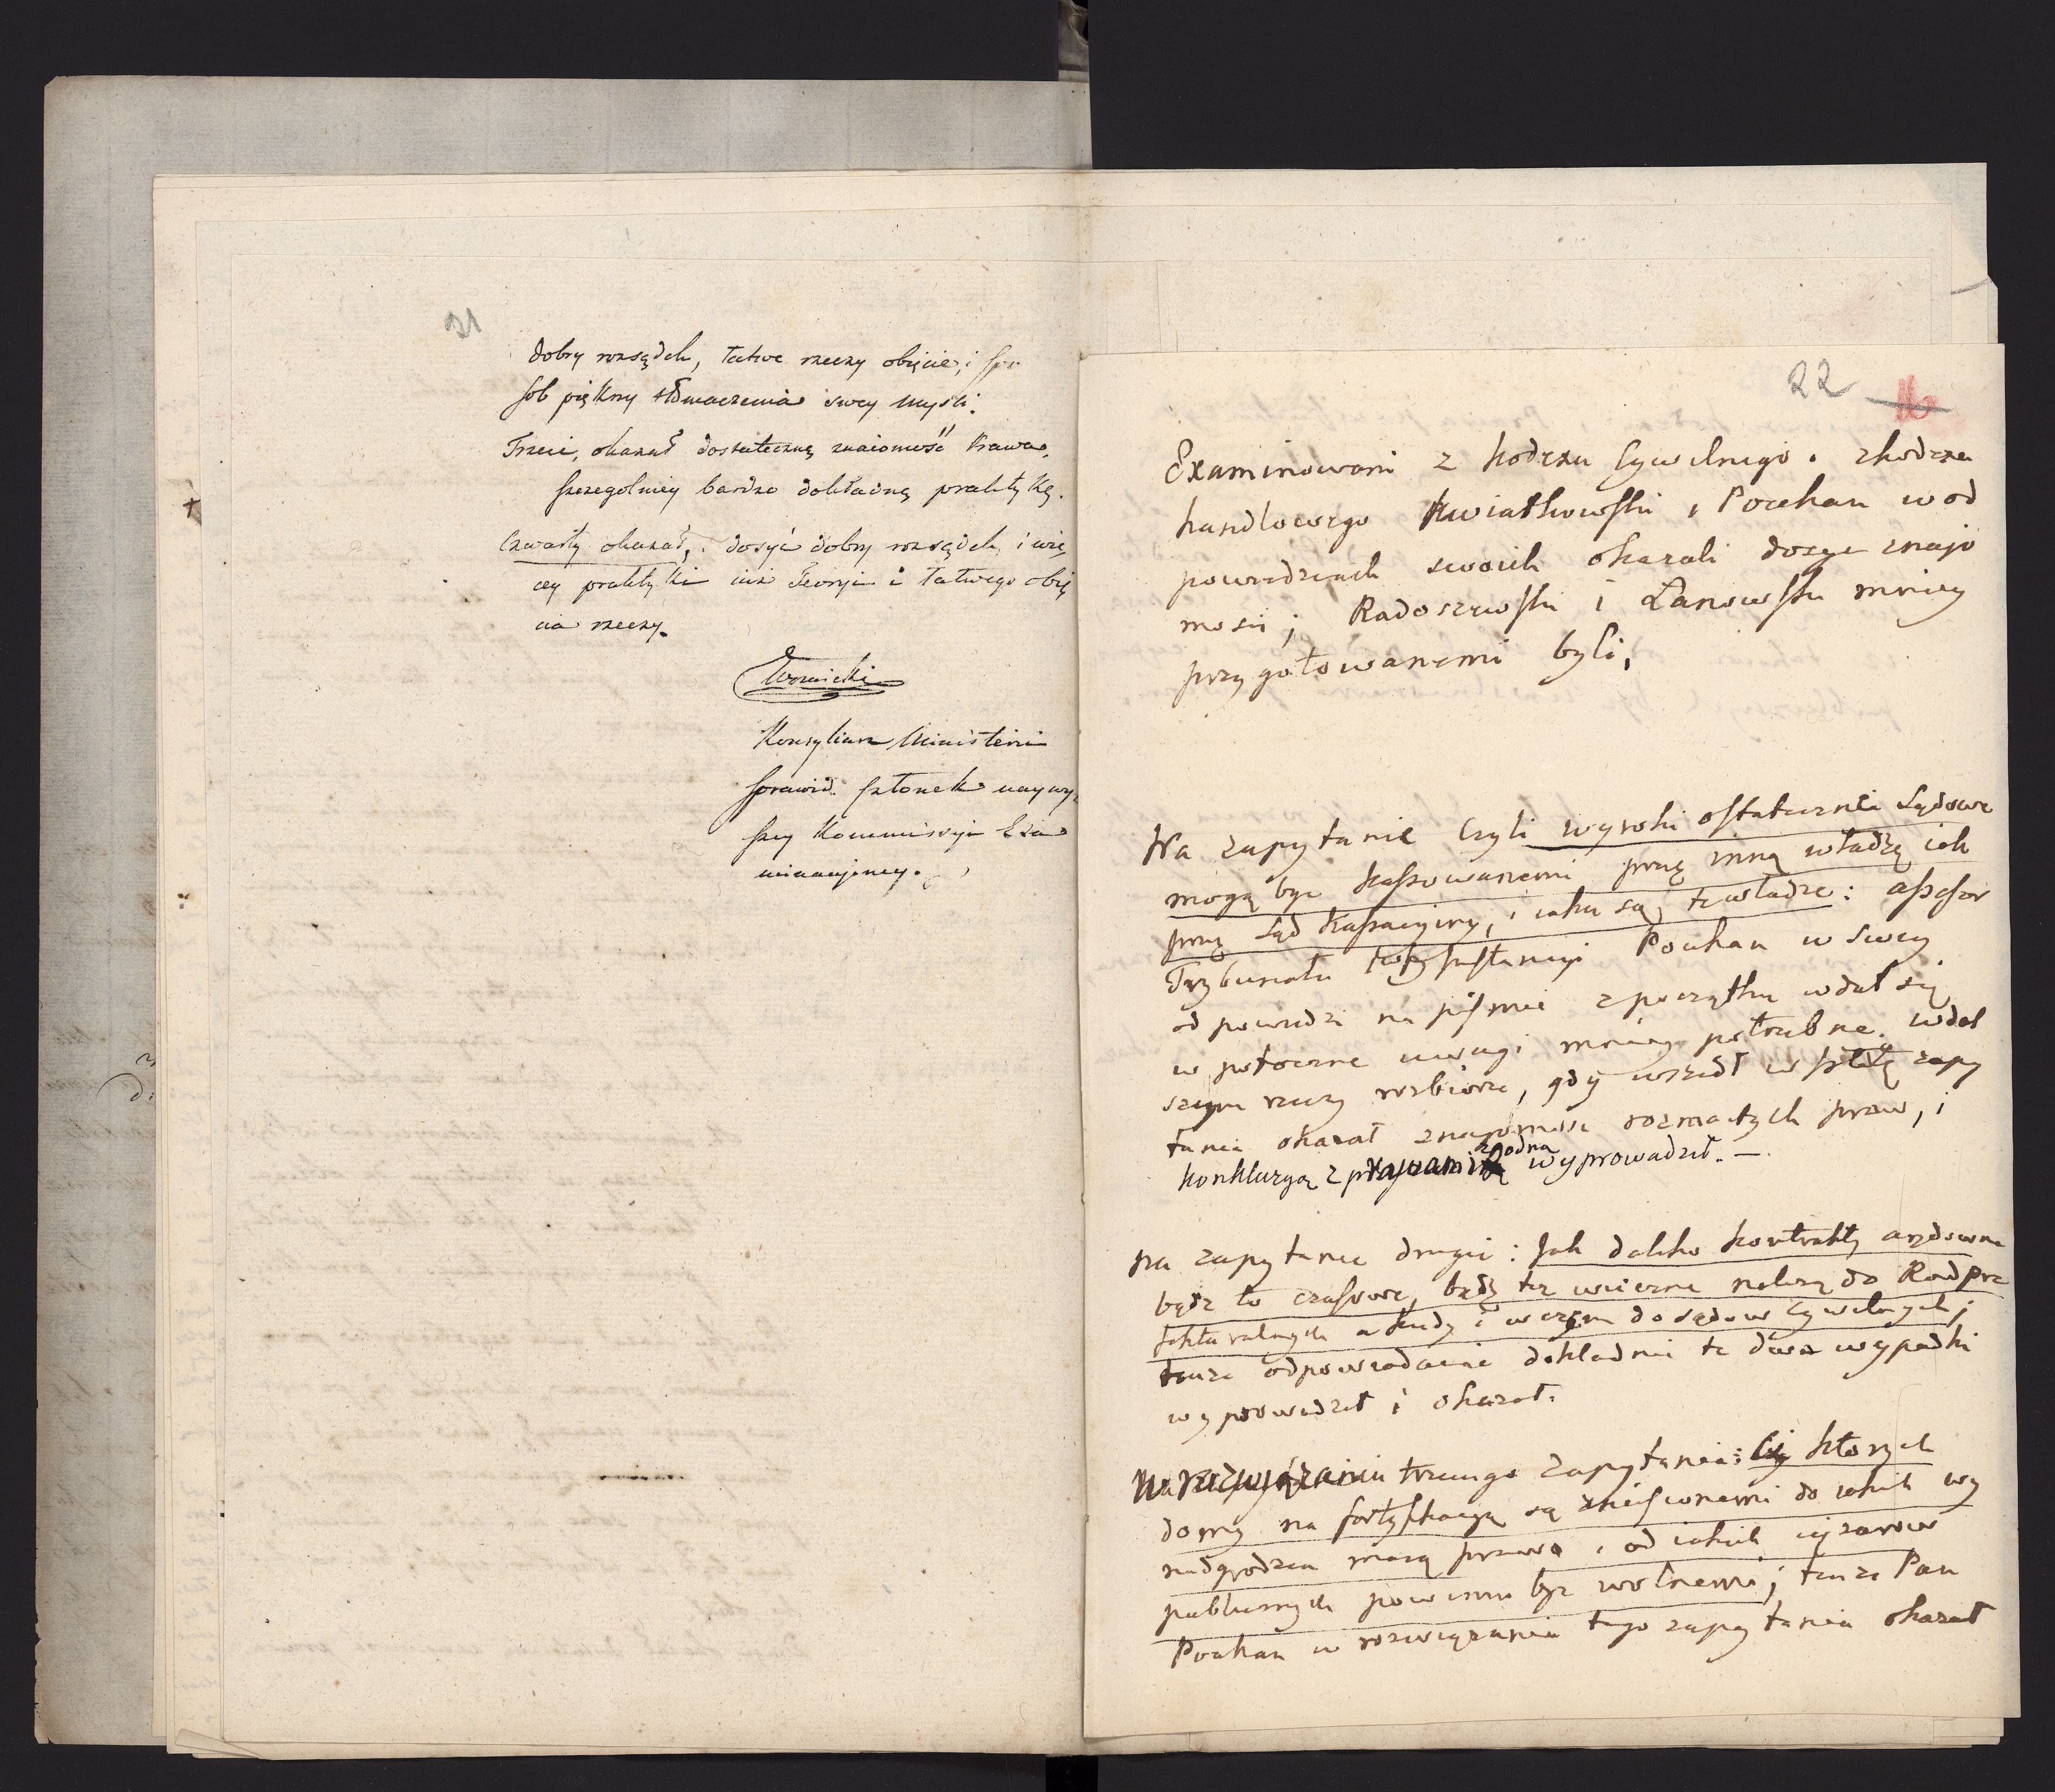 21
dobry rozsądek, łatwe rzeczy obięcie, i spo
sob piękny tłómaczenia swey myśli.
Trzeci, okazał dostateczną znaiomość Prawa,
szczegolniey bardzo dokładną praktykę.
Czwarty okazał, dosyć dobry rozsądek, i wię
cey praktyki niż Teoryi i łatwego obię
cia rzeczy.
Woznicki
Konsyliarz Ministerii
sprawied. członek naywyż
szey Kommissyi Exa
minacyiney.
22 16
Examinowani z kodexu Cywilnego i zkodexu
handlowego Kwiatkowski i Pockau w od
powiedziach swoich okazali dosyc znajo
mosci; Radoszewski i Łanowski mniey
przygotowanemi byli,
Na zapytanie Czyli wyroki ostateczne Sądowe
mogą byc kassowanemi przez inną władzę iak
przez Sąd Kassacyiny, i iakie są te władze: assessor
Trybunału Instancyi Pockau w swey
odpowiedzi na piśmie z początku wdał się
w potoczne uwagi mniey potrzebne. w dal
szym rzeczy rozbiorze, gdy wszedł w istotę zapy
tania okazał znajomosc rozmaitych praw, i
konkluzyą z prawami zgodną wyprowadził. —
na zapytanie drugie: Jak daleko kontrakty arędowne
bądz to czasowe, bądz też wieczne należą do Rad pre
fekturalnych a kiedy i w czym do sądow cywilnych;
tenże odpowiadaiąc dokładnie te dwa wypadki
wypowiedział i okazał.
Na rozwiązanie trzeciego zapytania: Ci ktorych
domy na fortyfikacyą są zniesionemi do iakich wy
nadgrodzen maią prawo i od iakich cięzarow
publicznych powinni byc wolnemi; tenże Pan
Pockau w rozwiązaniu tego zapytania okazał